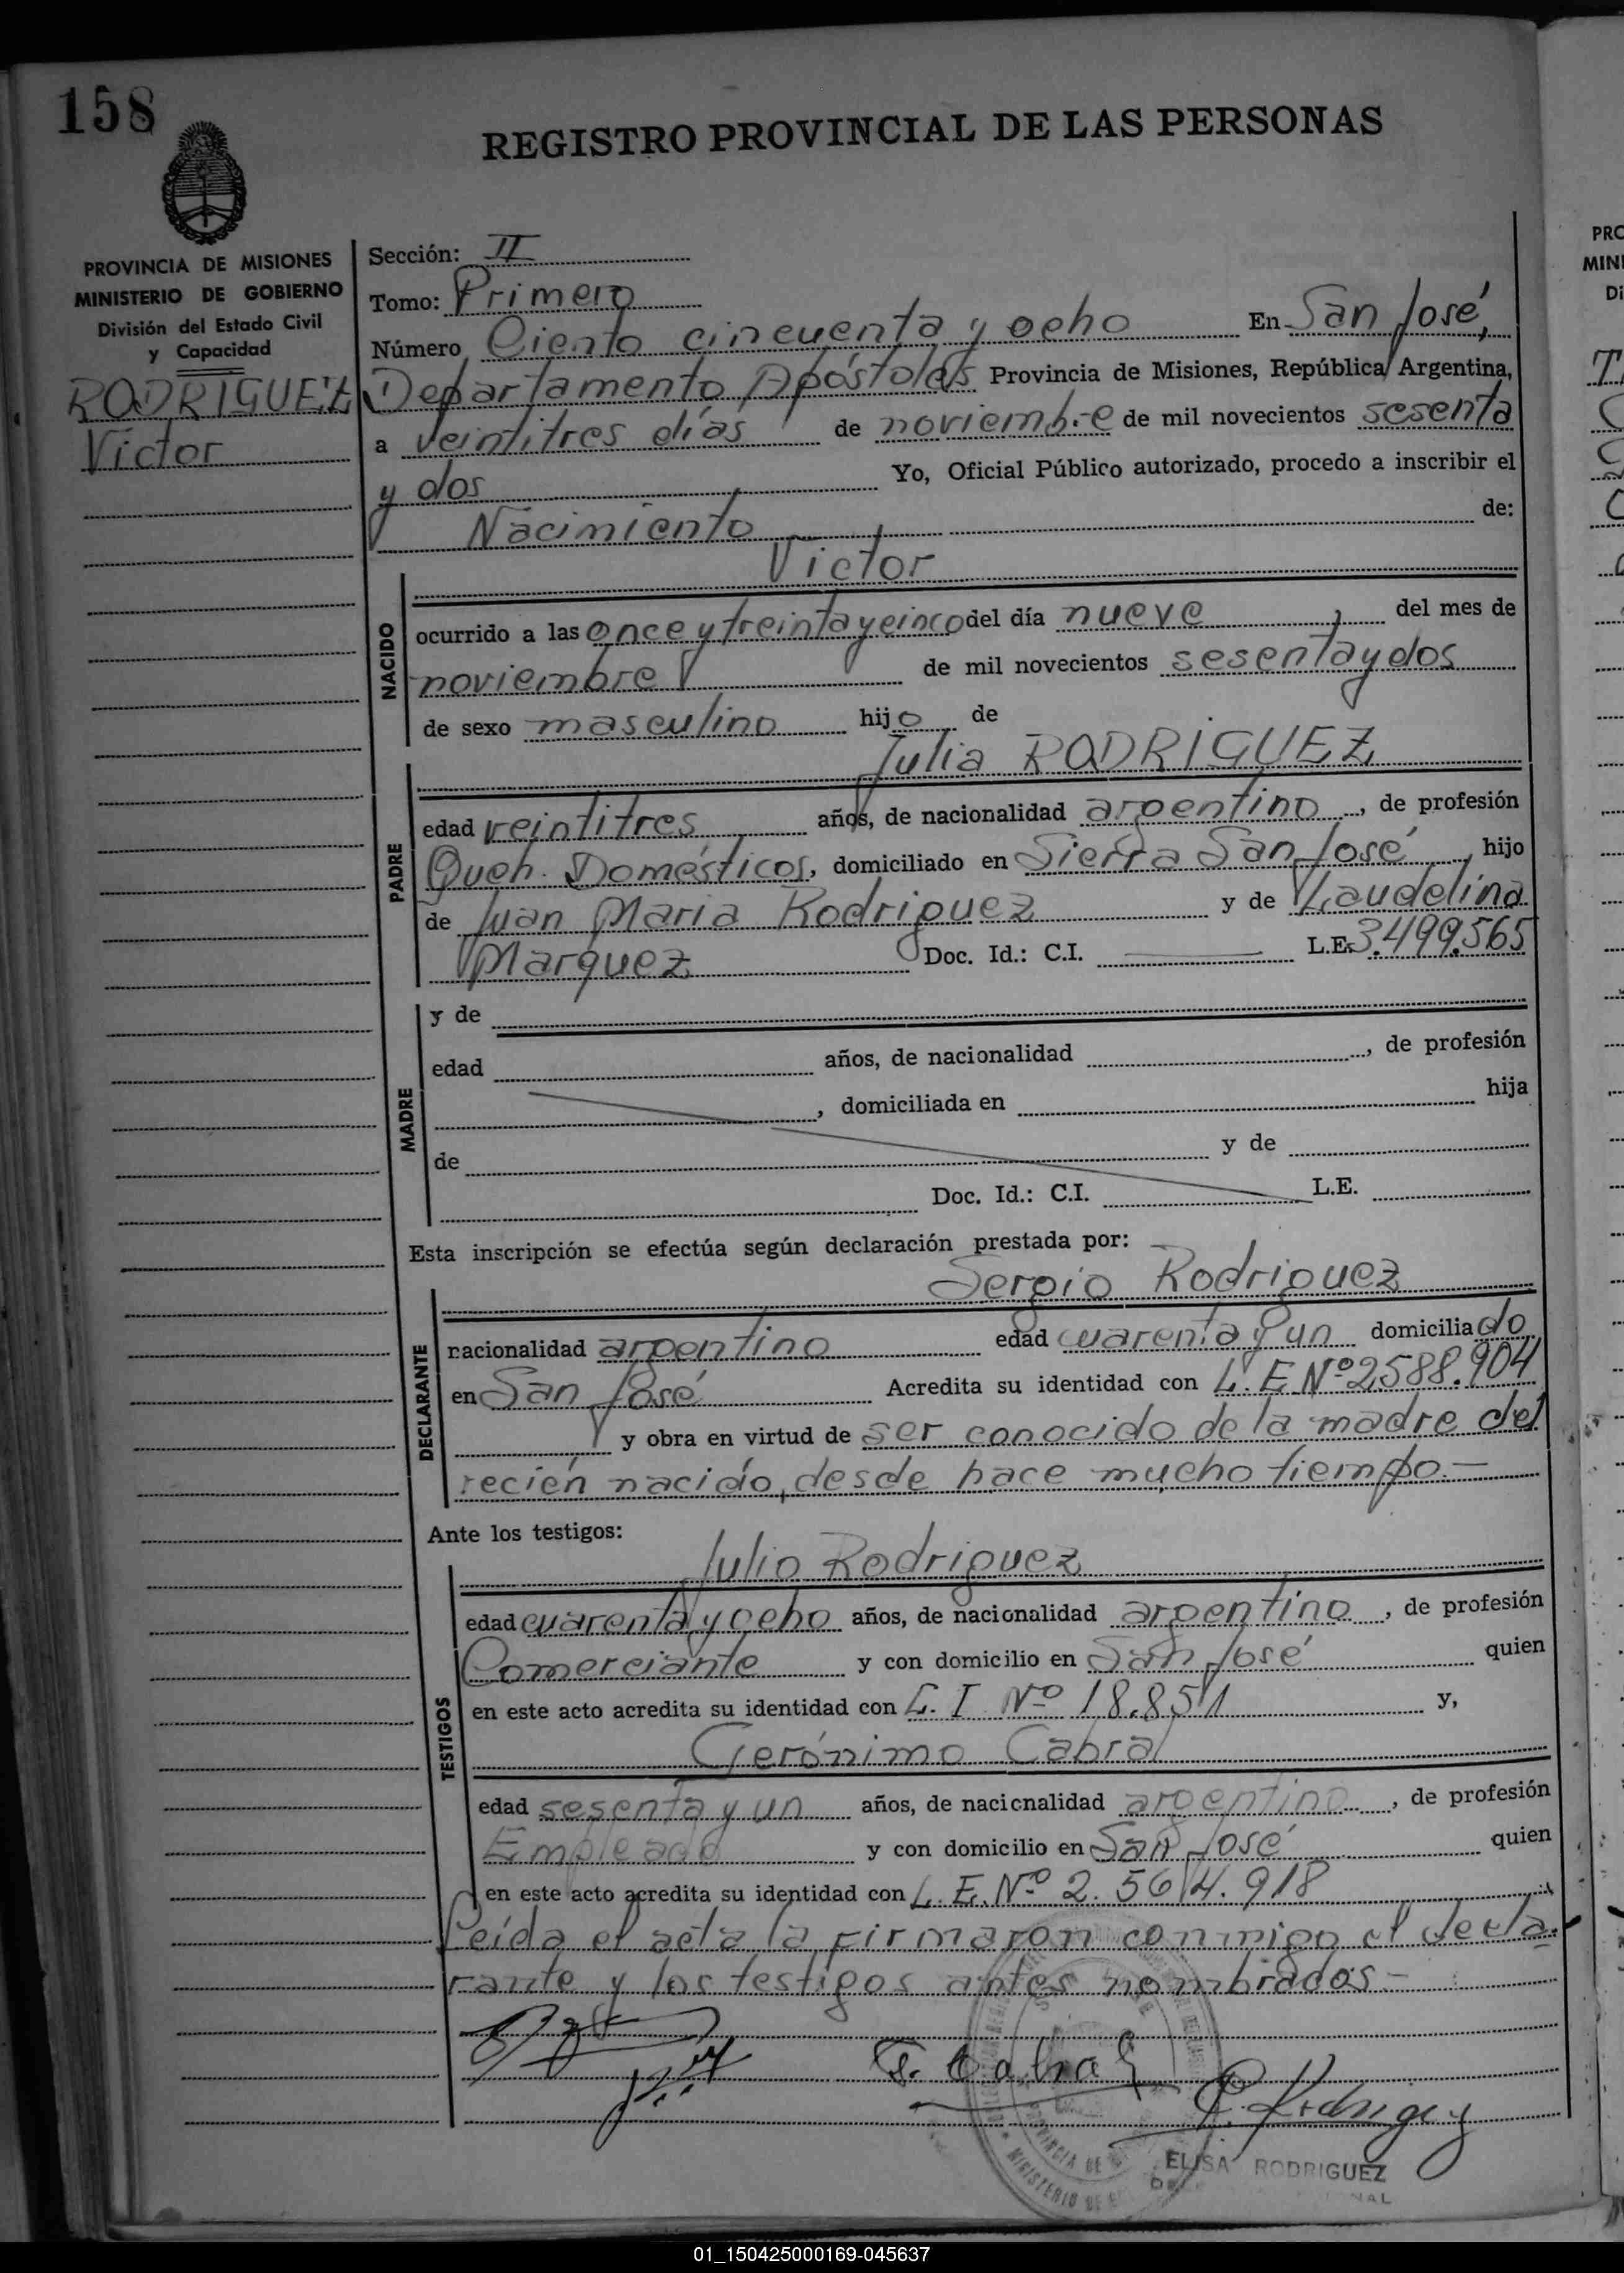 158
REGISTRO PROVINCIAL DE LAS PERSONAS
PROVINCIA DE MISIONES
MINISTERIO DE GOBIERNO
División del Estado Civil
y Capacidad
RODRIGUEZ
Víctor
Sección: II
Tomo: Primero
Número Ciento cincuenta y ocho En San José,
Departamento Apóstoles Provincia de Misiones, República Argentina,
a veintitres días de noviembre de mil novecientos sesenta
y dos Yo, Oficial Público autorizado, procedo a inscribir el
Nacimiento de:
Víctor
NACIDO
ocurrido a las once y treinta y cinco del día nueve, del mes de
noviembre de mil novecientos sesenta y dos
de sexo masculino hijo de
Julia RODRIGUEZ
PADRE
edad veintitres años, de nacionalidad argentino, de profesión
Queh. Domésticos, domiciliado en Sierra San José, hijo
de Juan Maria Rodriguez y de Laudelina
Marquez Doc. Id.: C.I. L.E. 3.499.565
MADRE
y de
edad años, de nacionalidad , de profesión
, domiciliada en hija
de y de
Doc. Id.: C.I. L.E.
Esta inscripción se efectúa según declaración prestada por:
Sergio Rodriguez
DECLARANTE
nacionalidad argentino edad cuarenta y un domiciliado
en San José Acredita su identidad con L. E Nº 2588.904
y obra en virtud de ser conocido de la madre del
recién nacido, desde hace mucho tiempo.—
Ante los testigos:
Julio Rodriguez
TESTIGOS
edad cuarenta y ocho años, de nacionalidad argentino, de profesión
Comerciante y con domicilio en San José quien
en este acto acredita su identidad con C. I Nº 18.851 y,
Gerónimo Cabral
edad sesenta y un años, de nacionalidad argentino, de profesión
Empleado y con domicilio en San José quien
en este acto acredita su identidad con L. E. Nº 2.564.918
Leída el acta la firmaron conmigo el decla-
rante y los testigos antes nombrados.-
G. Cabral
ELISA RODRIGUEZ
01_150425000169-045637